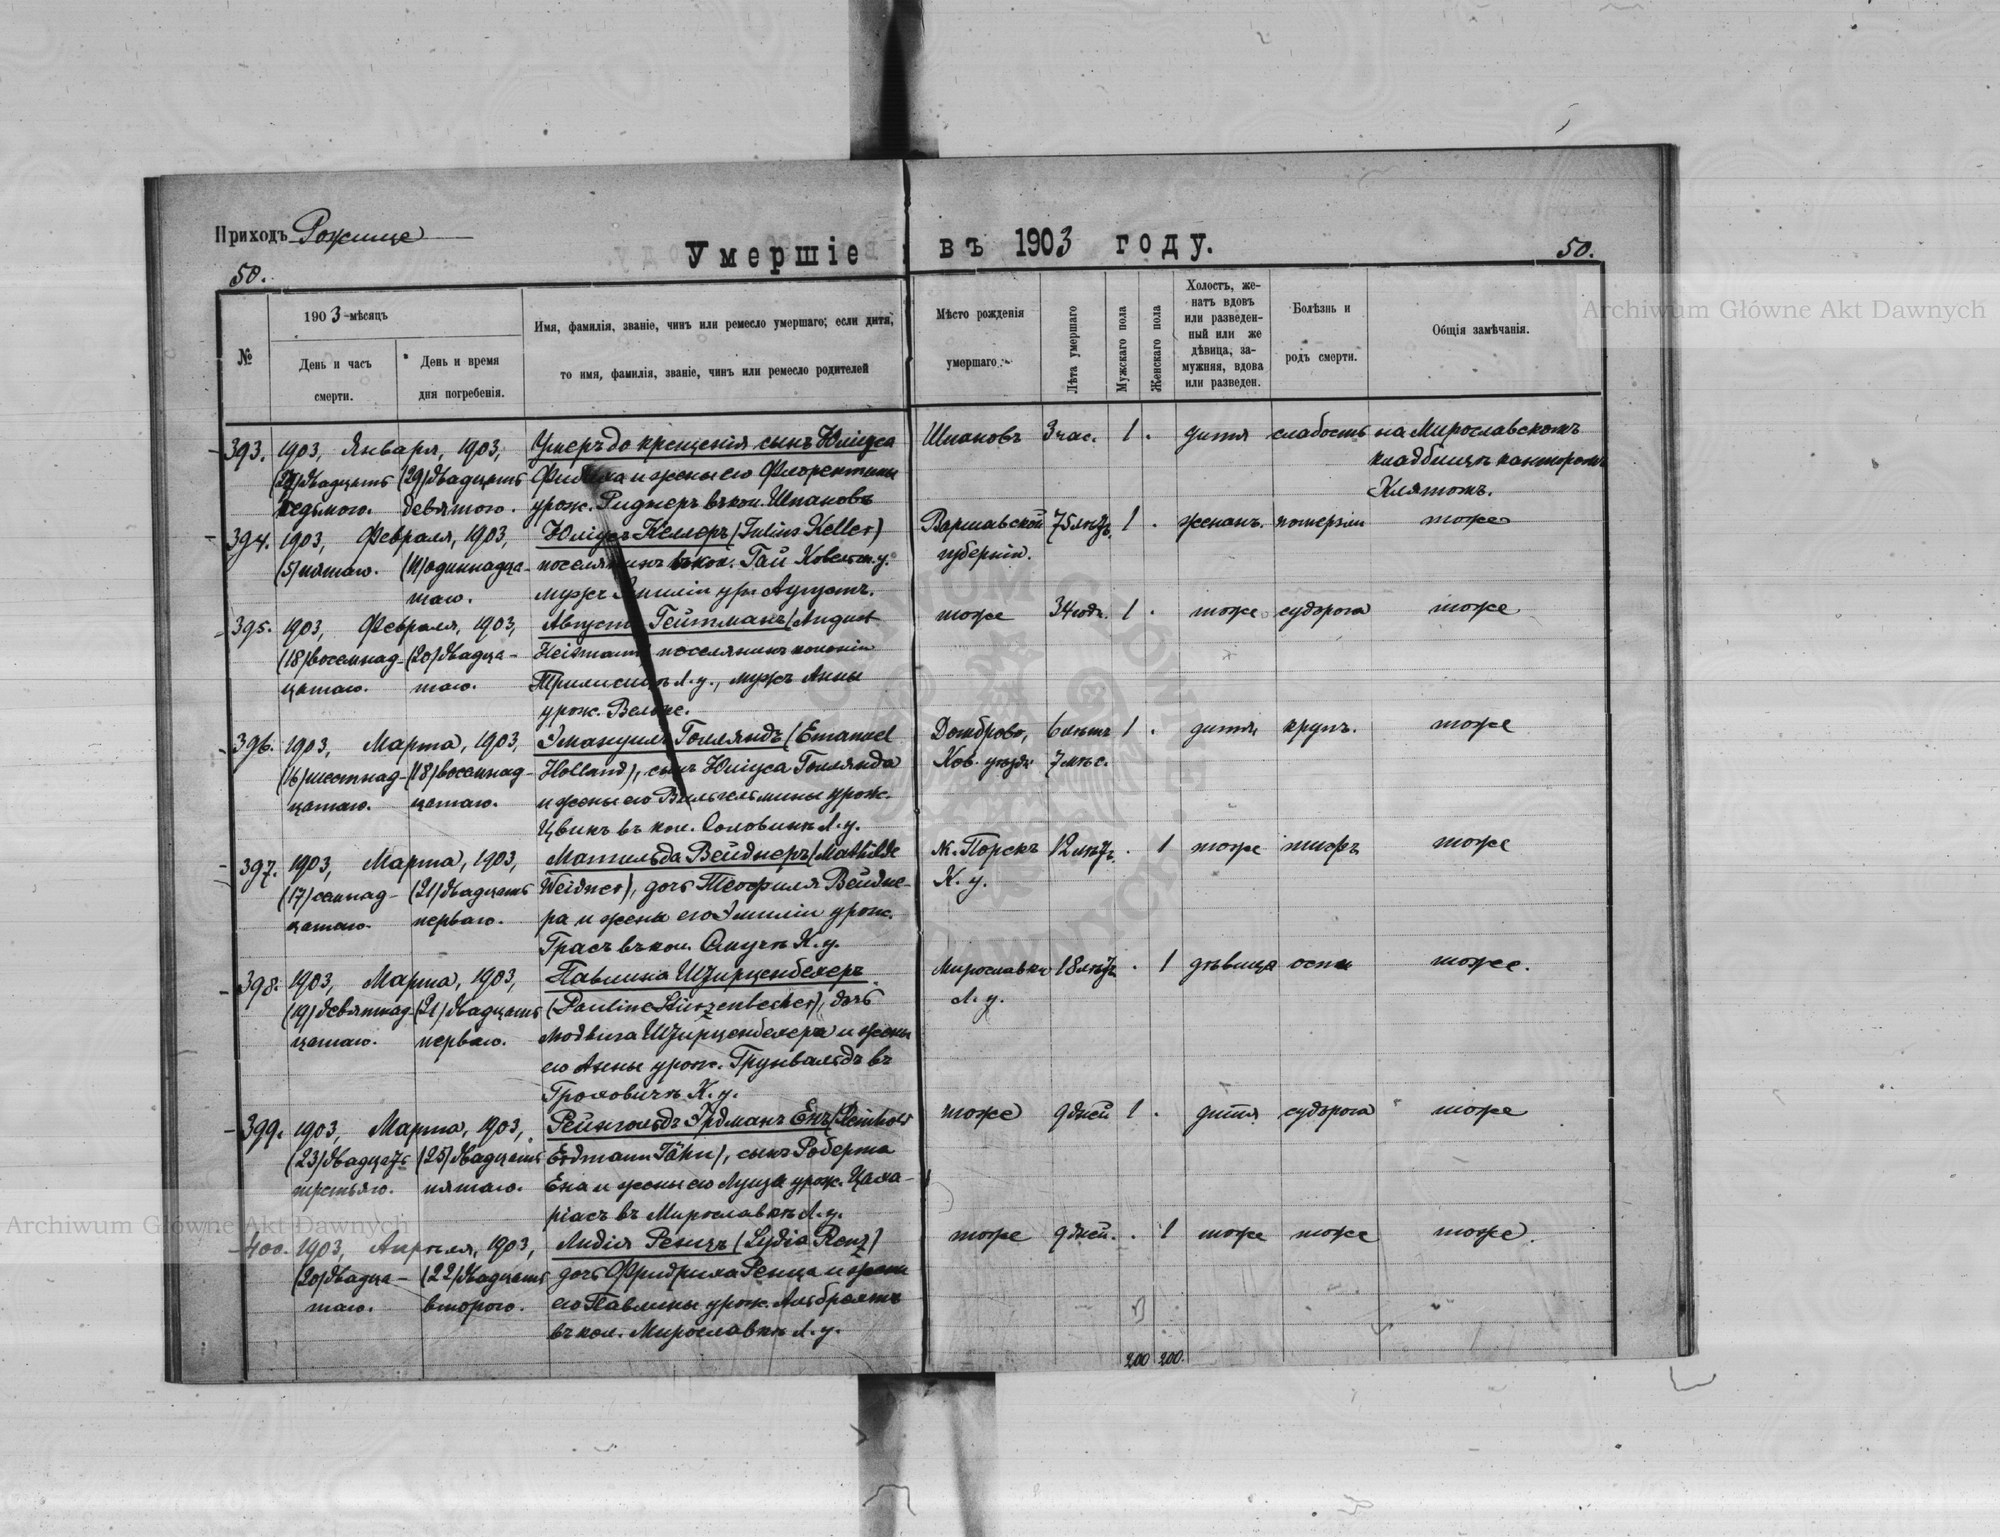 Приходъ Рожище
Умершіе въ 1903 году.
50.
50.
№
1903 мѣсяцъ
День и часъ смерти.
День и время дня погребенія.
Имя, фамилія, званіе, чинъ или ремесло умершаго; если дитя,
то имя, фамилія, званіе, чинъ или ремесло родителей
Мѣсто рожденія умершаго
Лѣта умершаго
Мужскаго пола
Женскаго пола
Холостъ, же-
натъ вдовъ
или разведен-
ный или же
дѣвица, за-
мужняя, вдова
или разведен.
Болѣзнь и
родъ смерти.
Общія замѣчанія.
Archiwum Główne Akt Dawnych
393. 1903, Января, 1903, Умеръ до крещенія сынъ Юліуса Шпановъ 3 час. 1 . дитя слабость на Мирославскомъ
(27) двадцать (29) двадцать и жены его Флорентины кладбищѣ канторомъ
седьмого. девятого. урож. Риднеръ въ кол. Шпановъ Клятомъ.
394. 1903, Февраля, 1903, Юліусъ Келлеръ (Julius Keller) Варшавской 75 лѣтъ 1 . женатъ. тоже
(5) пятаго. (11) одиннадца- поселянинъ въ кол. Гай Ковельск. у. губерніи.
таго. мужъ Эмиліи ур. Августъ.
395. 1903, Февраля, 1903, Августъ Гейтманъ (August тоже 34 года. 1 . тоже судорога тоже
(18) восемнад- (20) двадца- поселянинъ колоніи
цатаго. таго. у., мужъ Анны
урож.
396. 1903, Марта, 1903, Эмануилъ Голляндъ (Emanuel Домброво, 6 лѣтъ 1 . дитя, крупъ. тоже
(16) шестнад- (18) восемнад- Holland), сынъ Юліуса Голлянда Ков. уѣзда 7 мѣс.
цатаго. цатаго. и жены его Вильгельмины урож.
Цвикъ въ кол. Л. у.
397. 1903, Марта, 1903, Матильда Вейднеръ (Mathilde м. Порскъ 12 лѣтъ . 1 тоже тифъ тоже
(17) семнад- (21) двадцать Weidner), дочь Теофиля Вейдне- К. у.
цатаго. перваго. ра и жены его Эмиліи урож.
Грасъ въ кол. К. у.
398. 1903, Марта, 1903, Павлина Штирценбехеръ Мирославка 18 лѣтъ . 1 дѣвица оспа тоже.
(19) девятнад- (21) двадцать (Pauline Stürzenbecher), дочь Л. у.
цатаго. перваго. Людвига Штирценбехера и жены
его Анны урож. Грунвальдъ въ
К. у.
399. 1903, Марта, 1903, Рейнгольдъ Эрдманъ Енъ (Reinhold тоже 9 дней 1 . дитя судорога тоже
(23) двадцать (25) двадцать Erdmann Jähn), сынъ Роберта
третьяго. пятаго. Ена и жены его Луизы урож. Цаха-
ріасъ въ Мирославкѣ Л. у.
400. 1903, Апрѣля, 1903, Лидія Ренцъ (Lydia Renz) тоже 9 дней. . 1 тоже тоже тоже.
(20) двадца- (22) двадцать дочь Фридриха Ренца и жены
таго. второго. его Павлины урож. Альбрехтъ
въ кол. Мирославкѣ Л. у.
200 200.
Archiwum Główne Akt Dawnych